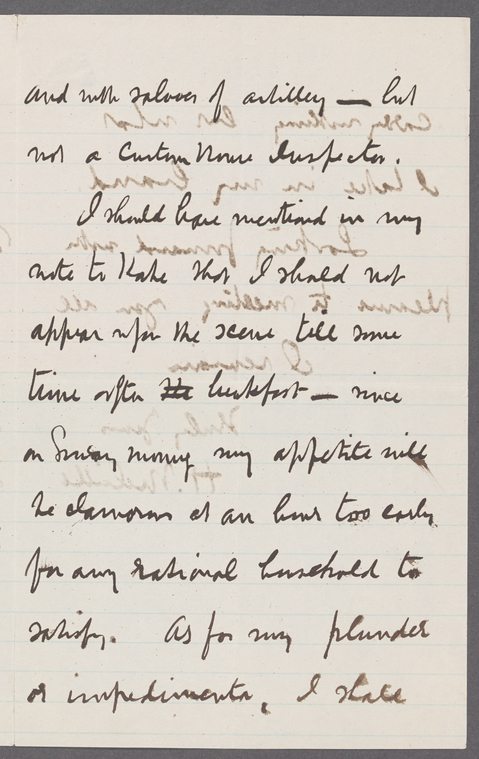 and with salvoes of artillery — but
not a Custom House Inspector.
I should have mentioned in my
note to Kate that I should not
appear upon the scene till some
time after the breakfast — since
on Sunday morning my appetite will
be clamorous at an hour too early
for any rational household to
satisfy. As for my plunder
or impedimenta, I shall